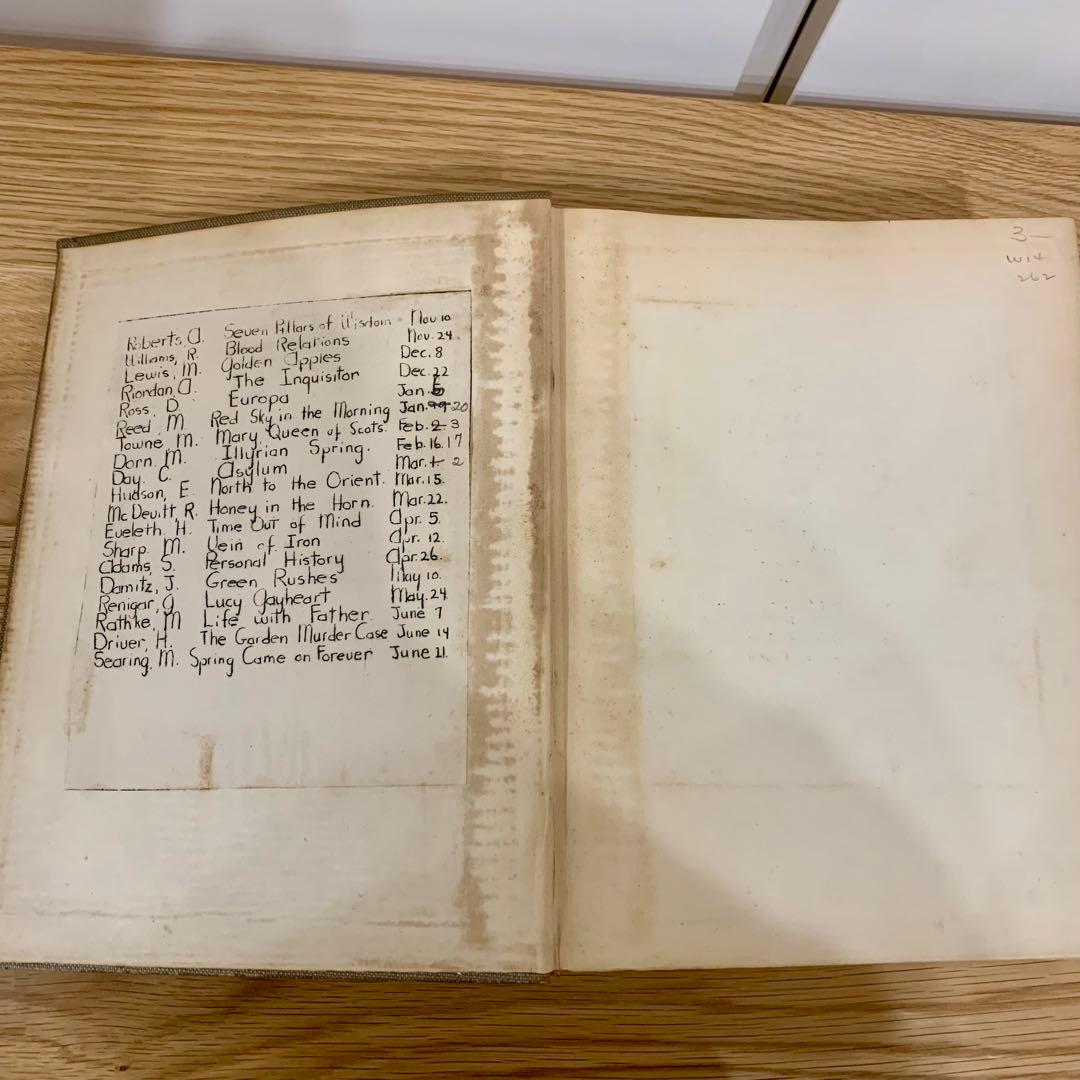 Roberts, A. Seven Pillars of Wisdom - Nov 10
Williams, R. Blood Relations Nov. 24
Lewis, M. Golden Apples Dec. 8
Riordan, A. The Inquisitor Dec. 22
Ross, D. Europa Jan.
Reed, M. Red Sky in the Morning Jan. 20
Towne, M. Mary, Queen of Scots. Feb. 2 3
Dorn, M. Illyrian Spring. Feb. 16. 17
Day, C. Asylum Mar. 1 2
Hudson, E. North to the Orient. Mar. 15.
McDevitt, R. Honey in the Horn. Mar. 22.
Eveleth, H. Time Out of Mind Apr. 5.
Sharp, M. Vein of Iron Apr. 12.
Adams, S. Personal History Apr. 26.
Damitz, J. Green Rushes May 10.
Renigar, G. Lucy Gayheart May. 24
Rathke, M Life with Father. June 7
Driver, H. The Garden Murder Case June 14
Searing, M. Spring Came on Forever June 21.
3—
W14
262